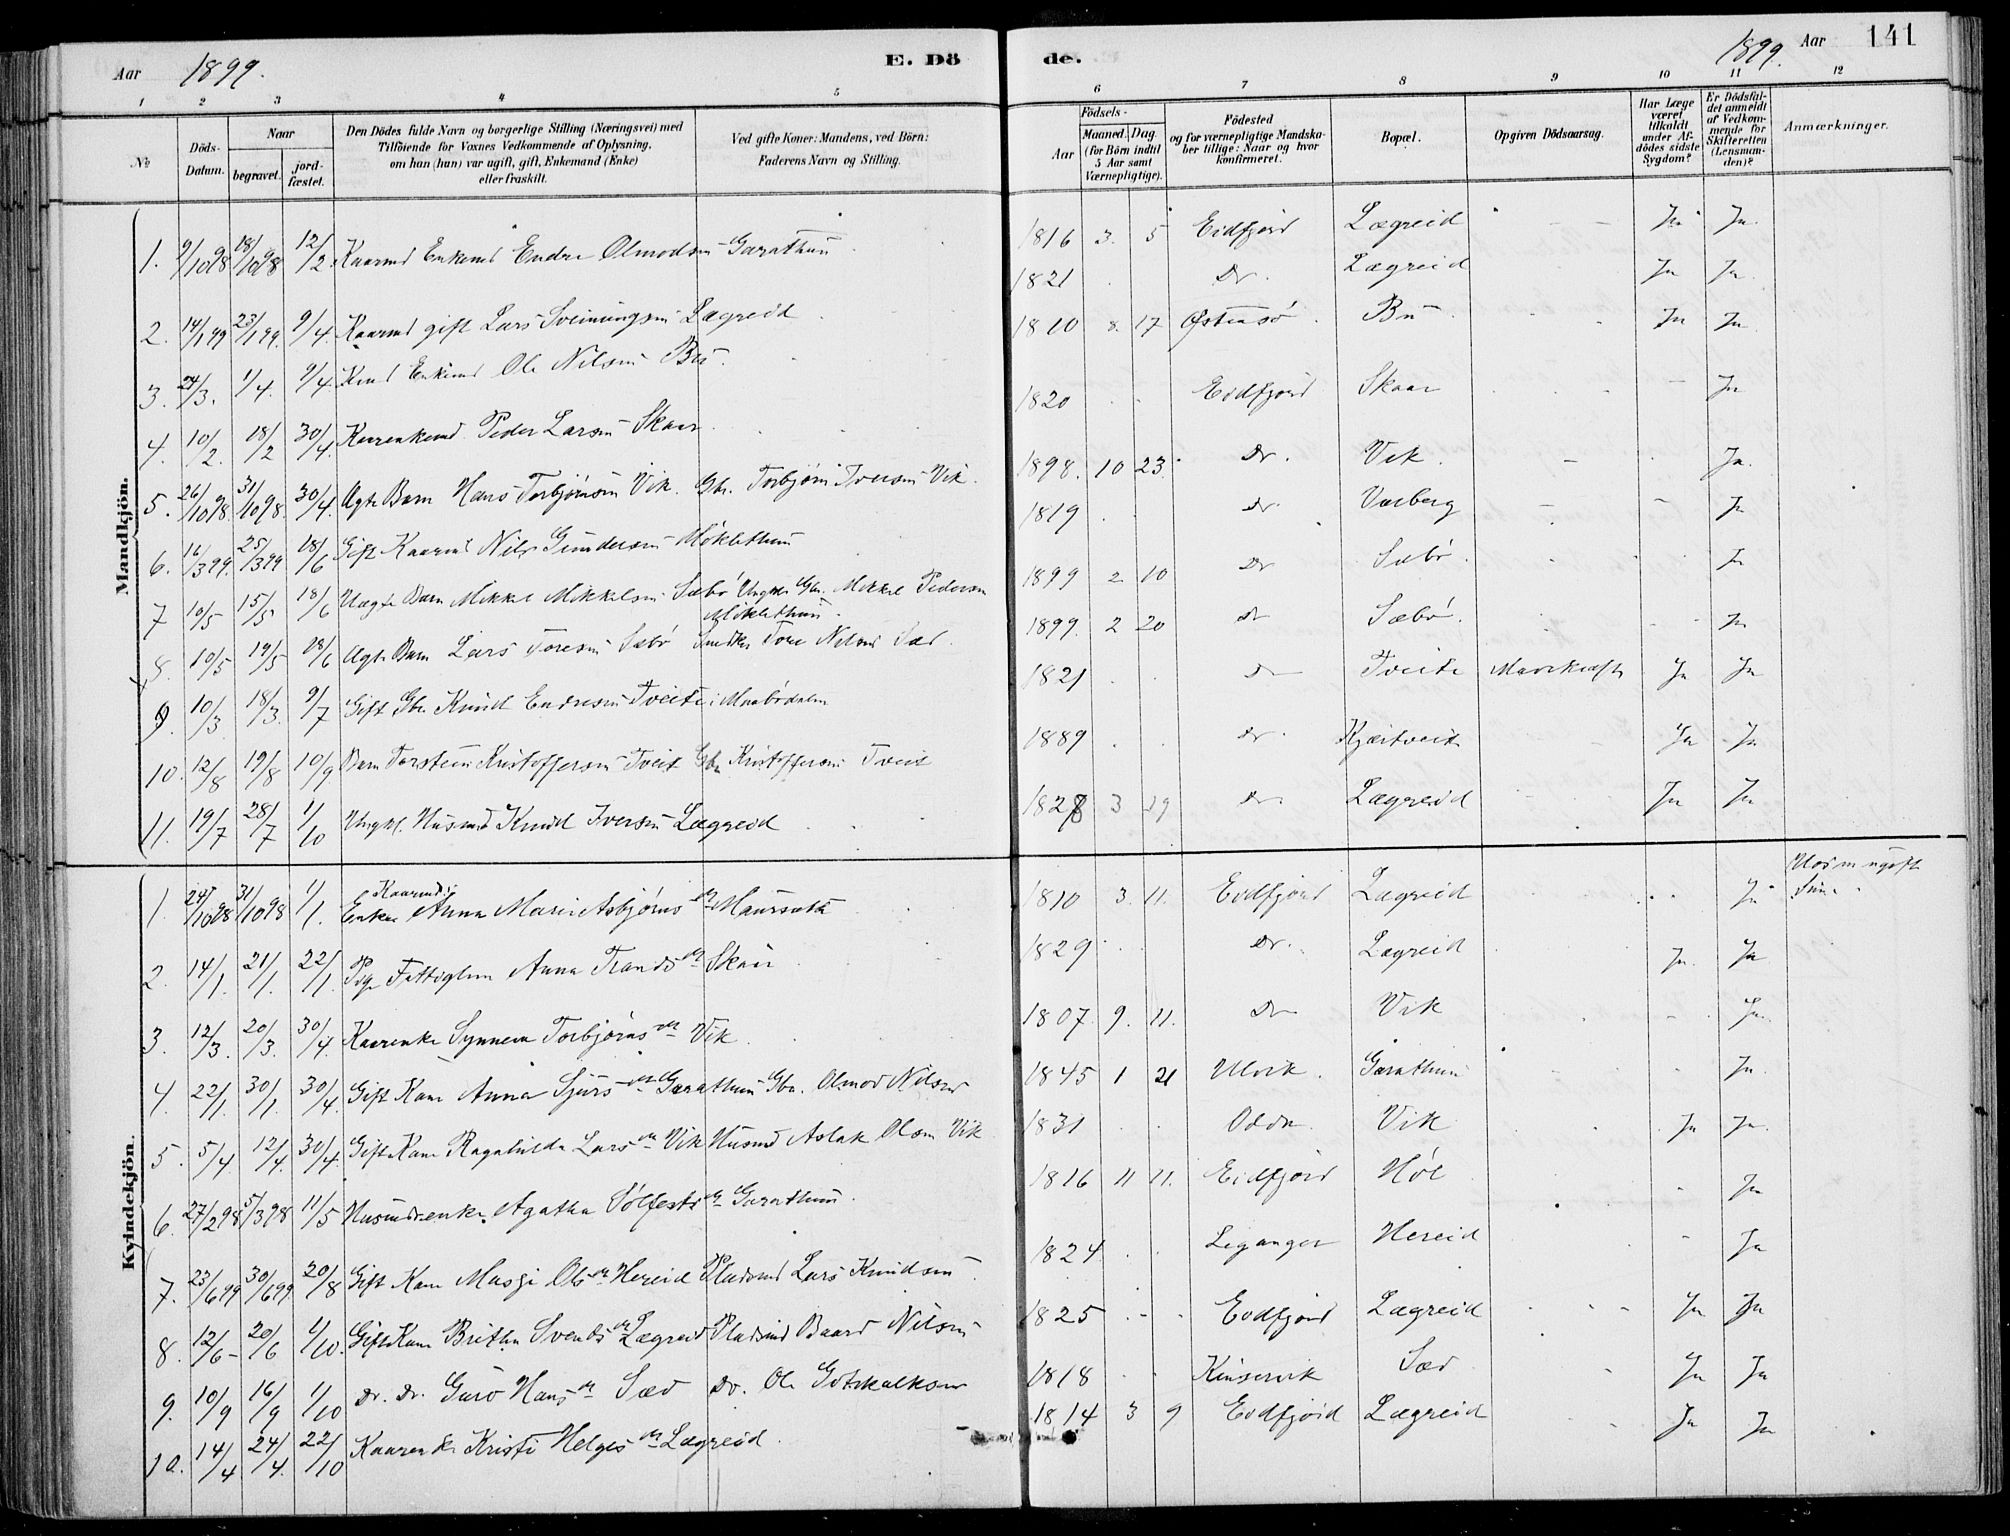 Aar 1899. E. Dö de. 1899. Aar 141
1 2 3 4 5 6 7 8 9 10 11 12
No
Döds-Datum.
Naar
begravet.
jord-fæstet.
Den Dödes fulde Navn og borgerlige Stilling (Næringsvei) med
Tilföiende for Voxnes Vedkommende af Oplysning,
om han (hun) var ugift, gift, Enkemand (Enke)
eller fraskilt.
Ved gifte Koner: Mandens, ved Börn:
Faderens Navn og Stilling.
Födsels-
Aar
Maaned. Dag.
(for Börn indtil
5 Aar samt
Værnepligtige).
Födested
og for værnepligtige Mandska-
ber tillige: Naar og hvor
konfirmeret.
Bopæl.
Opgiven Dödsaarsag.
Har Læge
været
tilkaldt
under Af-
dödes sidste
Sygdom?
Er Dödsfal-
det anmeldt
af Vedkom-
mende for
Skifteretten
(Lensman-
den)?
Anmærkninger.
Mandkjön.
1. 9/10 98 18/10 98 12/2 Kaarmd Enkemd Endre Olmodsen Garathun 1816 3. 5 Eidfjord Lægreid Ja Ja.
2. 14/1 99 23/1 99. 9/4. Kaarmd gift Lars Sveinungsen Lægreid 1821 Do. Lægreid Ja Ja.
3. 24/3. 1/4. 9/4. Enkemd Ole Nilsen Bu. 1810 8. 17 Østensø Bu Ja Ja.
4. 10/2. 18/2 30/4. Kaarenkemd. Peder Larsen Skaar 1820 Eidfjord Skaar Ja
5. 26/10 98. 31/10 98. 30/4. Ægte Barn Hans Torbjørnsen Vik. Gbr. Torbjørn Iversen Vik. 1898. 10 23. Do. Vik. Ja.
6. 16/3 99. 25/3 99 18/6 Gift Kaarmd Nils Gundersen Møklethun 1819 Do. Varberg Ja
7 10/5 15/5 18/6 Uægte Barn Mikkel Mikkelsen Sæbø Ungkl. Gbr. Mikkel Pedersen 1899 2 10 Do Sæbø. Ja
Møklethun.
8. 10/5 19/5 18/6 Ægte Barn Lars Toresen Sæbø Tore Nilsen Sæd. 1899. 2 20 Do Sæbø. Ja
9. 10/3 18/3. 9/7 Gift Gbr. Knud Endresen Tveite i Maabødalen 1821 Do Tveite Mavekræft Ja Ja
10. 12/8 19/8 10/9 Barn Torstein Kristoffersen Tveit Gbr. Kristoffersen Tveit 1889 Do. Kjærtveit Ja Ja
11. 19/7 28/7 1/10 Ungkl. Husmd Knud Iversen Lægreid 1828 3 19 Do. Lægreid Ja Ja
Kvindekjön.
1 24/10 98 31/10 98 1/1. Kaarmds Enke Anna Marie Asbjørnsdr Maursæth 1810 3. 11. Eidfjord Lægreid Ja
2. 14/1. 21/1. 22/1. Pige Fattiglem Anna Trondsdr Skaar 1829 Do. Lægreid Ja. Ja
3. 12/3. 20/3. 30/4. Kaarenke Synneva Torbjørnsdr Vik. 1807. 9. 11. Do Vik Ja.
4. 22/1. 30/1. 30/4. Gift Kone Anna Sjursdr Garathun Gbr. Olmod Nilsen 1845 1 21 Ulvik. Garathun Ja.
5. 5/4. 12/4. 30/4. Gift Kone Ragnhilda Larsdr Vik Husmd Aslak Olsen Vik 1831 Odda. Vik Ja Ja.
6. 27/2 98 5/3 98 11/5 Husmdsenke. Agatha Sølfestsdr Garathun. 1816 11 11. Eidfjord Høl Ja
7. 23/6 99 30/6 99 20/8 Gift Kone Masji Olsdr Hereid Pladsmd Lars Knudsen 1824. Leganger Hereid Ja
8. 12/6 20/6 1/10. Gift Kone Britha Svendsdr Lægreid Pladsmd Baard Nilsen 1825 Eidfjord Lægreid Ja Ja
9. 10/9 16/9 1/10 Do. Do. Guro Hansdr Sæd Do. Ole Gotskalksen 1818 Kinservik Sæd Ja Ja
10. 14/4 24/4. 22/10 Kaarenke Kristi Helgesdr Lægreid. 1814 3 9 Eidfjord Lægreid Ja Ja